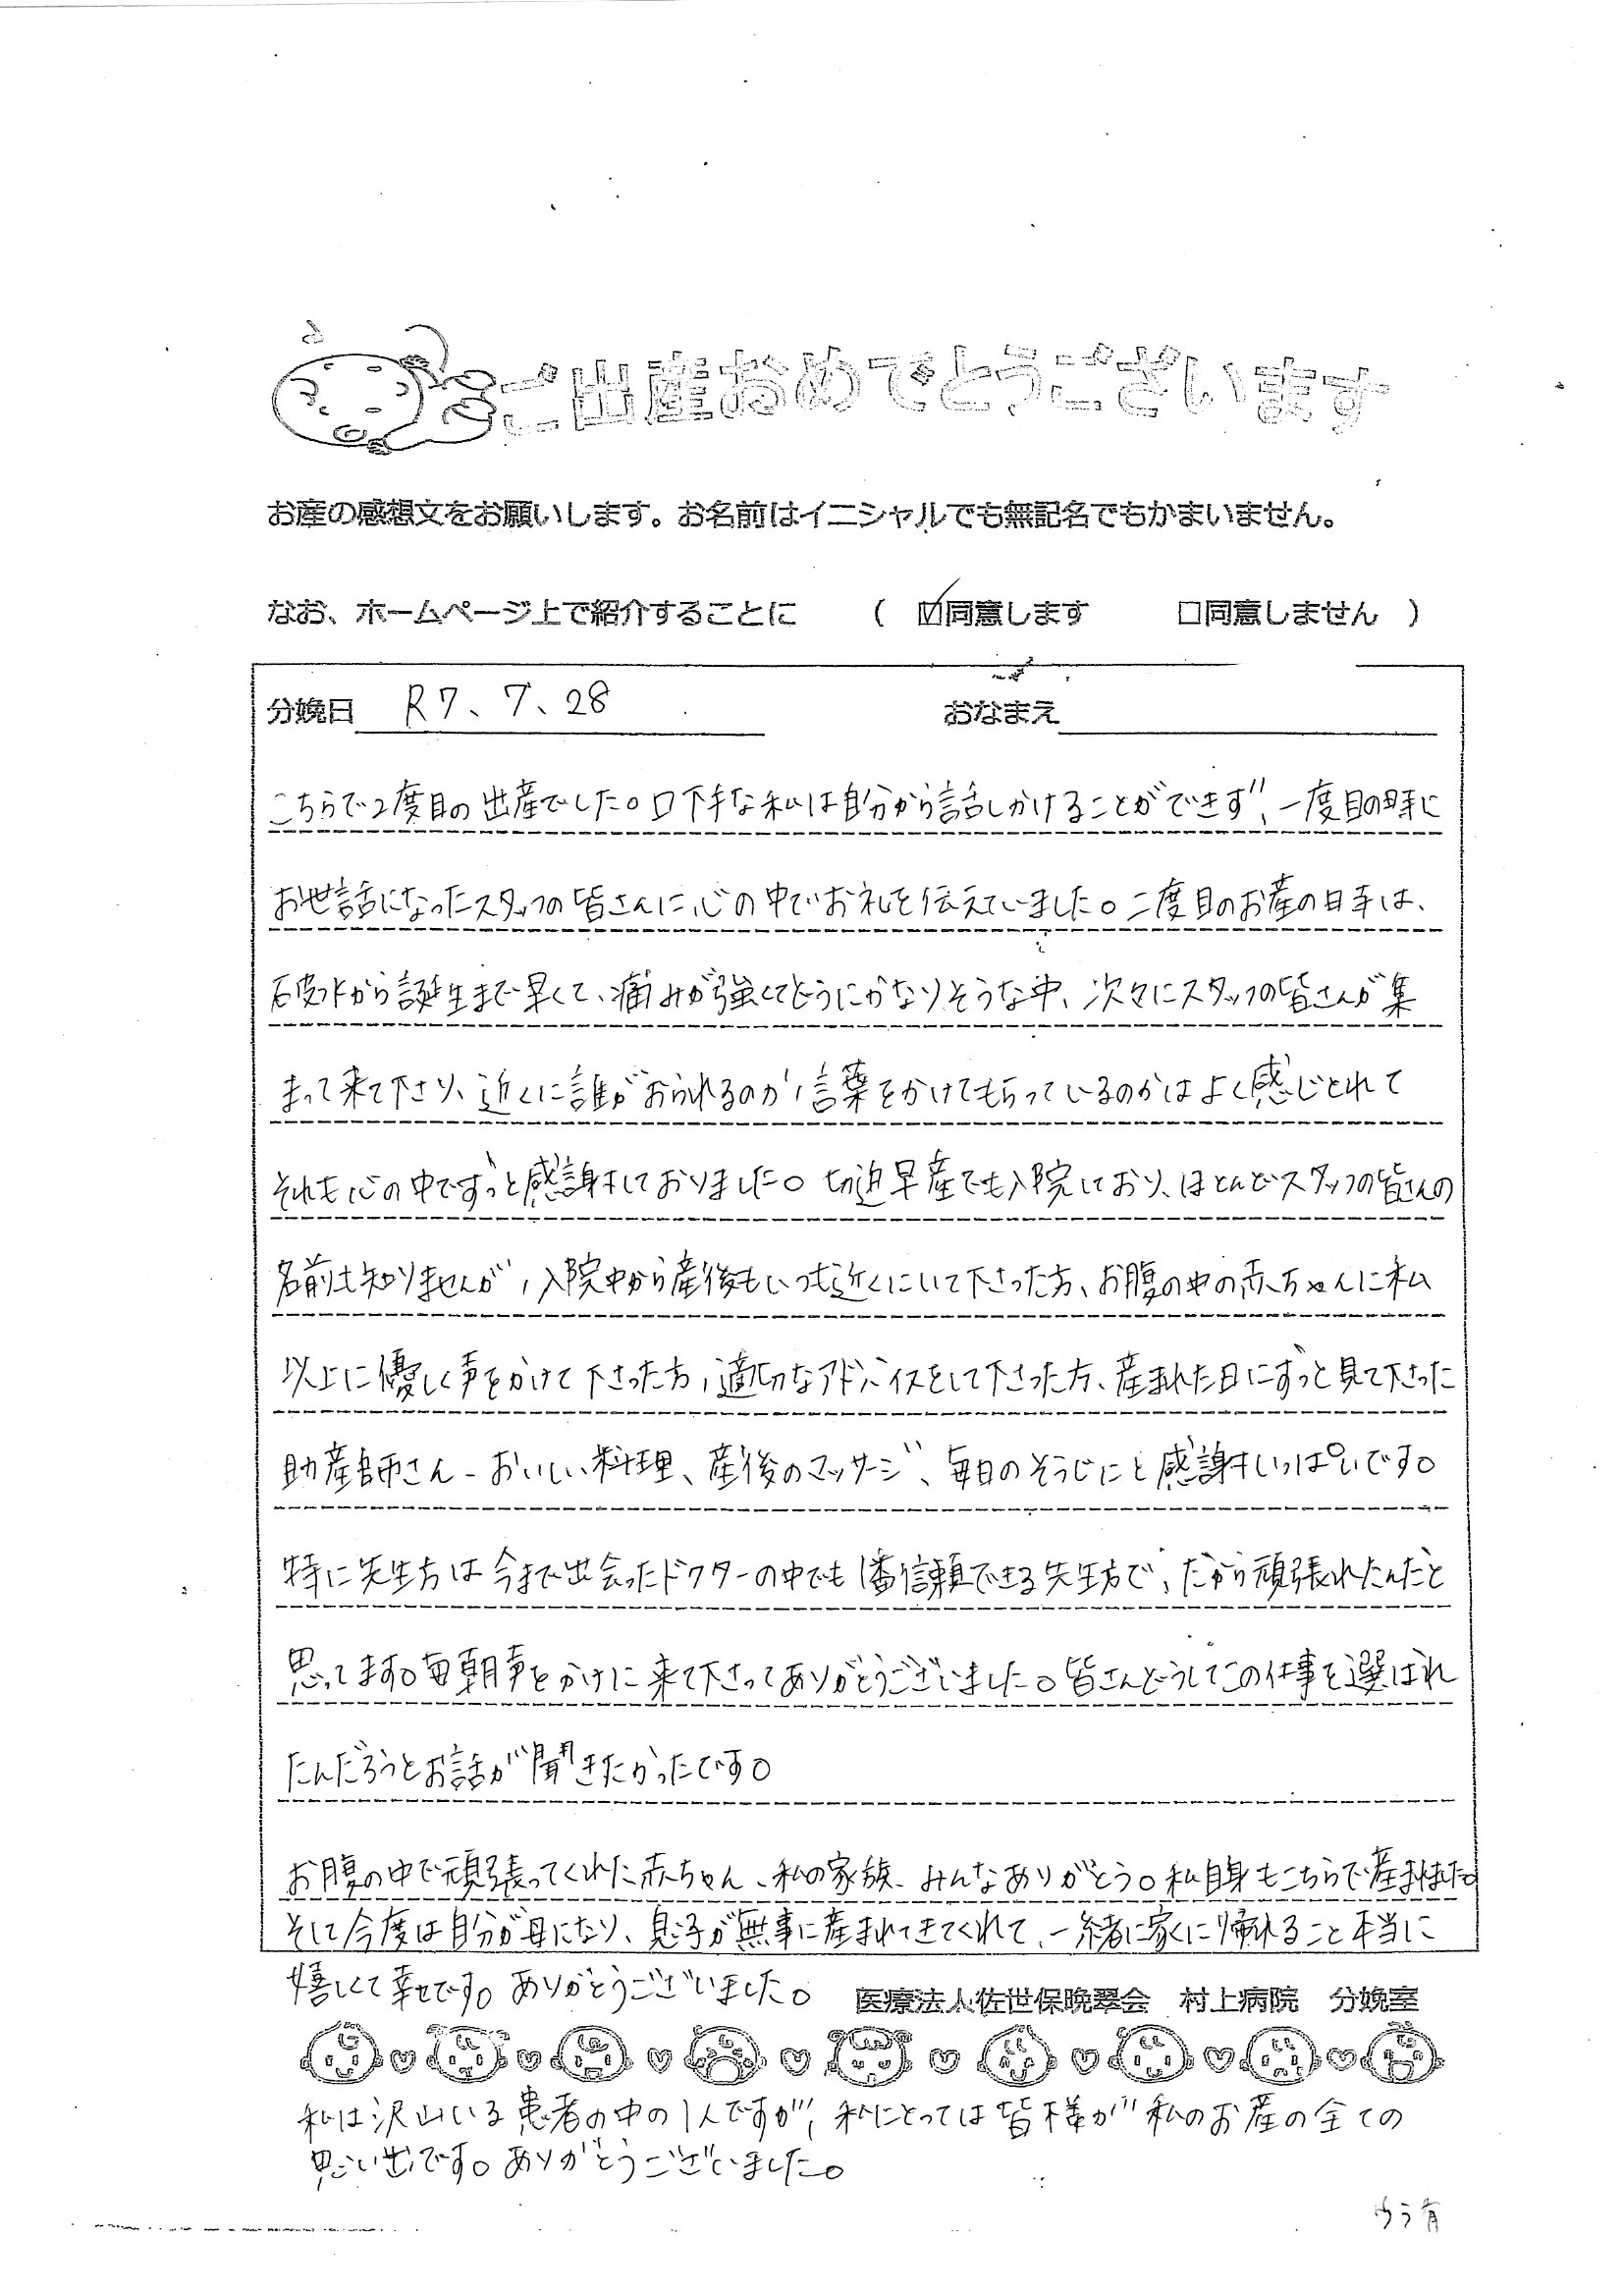 ご出産おめでとうございます
お産の感想文をお願いします。お名前はイニシャルでも無記名でもかまいません。
なお、ホームページ上で紹介することに ( ☑同意します □同意しません )
分娩日 R7、7、28 おなまえ
こちらで2度目の出産でした。口下手な私は自分から話しかけることができず、一度目の時に
お世話になったスタッフの皆さんに、心の中でお礼を伝えていました。二度目のお産の時は、
破水から誕生まで早くて、痛みが強くてどうにかなりそうな中、次々にスタッフの皆さんが集
まって来て下さり、近くに誰がおられるのか、言葉をかけてもらっているのかはよく感じとれて
それも心の中でずっと感謝しておりました。切迫早産でも入院しており、ほとんどスタッフの皆さんの
名前は知りませんが、入院中から産後もいつも近くにいて下さった方、お腹の中の赤ちゃんに私
以上に優しく声をかけて下さった方、適切なアドバイスをして下さった方、産まれた日にずっと見て下さった
助産師さん、おいしい料理、産後のマッサージ、毎日のそうじにと感謝いっぱいです。
特に先生方は今まで出会ったドクターの中でも1番信頼できる先生方で、だから頑張れたんだと
思ってます。毎朝声をかけに来て下さってありがとうございました。皆さんどうしてこの仕事を選ばれ
たんだろうとお話が聞きたかったです。
お腹の中で頑張ってくれた赤ちゃん、私の家族、みんなありがとう。私自身もこちらで産まれました。
そして今度は自分が母になり、息子が無事に産まれてきてくれて、一緒に家に帰れること本当に
嬉しくて幸せです。ありがとうございました。
医療法人佐世保晩翠会 村上病院 分娩室
私は沢山いる患者の中の1人ですが、私にとっては皆様が私のお産の全ての
思い出です。ありがとうございました。